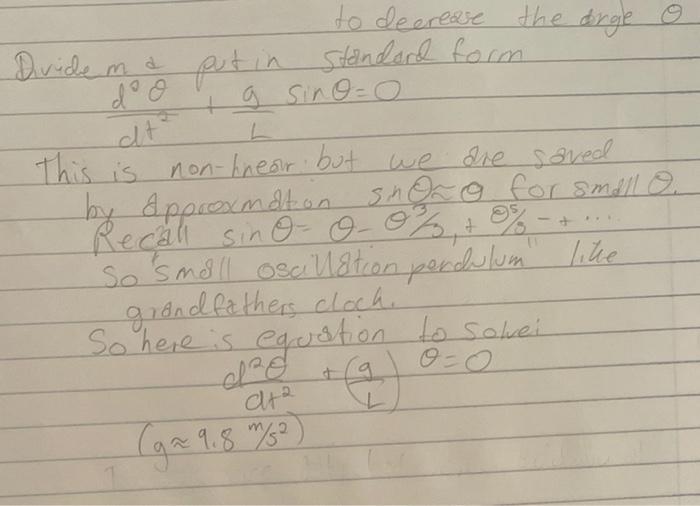 to decrease the angle θ
Divide m & put in standard form
d²θ/dt² + g/L sinθ = 0
This is non-linear but we are saved
by Approxmation sinθ ≈ θ for small θ.
Recall sinθ = θ - θ³/3! + θ⁵/5 - + ....
So "small oscillation pendulum" like
grandfathers clock.
So here is equation to solve:
d²θ/dt² + (g/L) θ = 0
(g ≈ 9.8 m/s²)